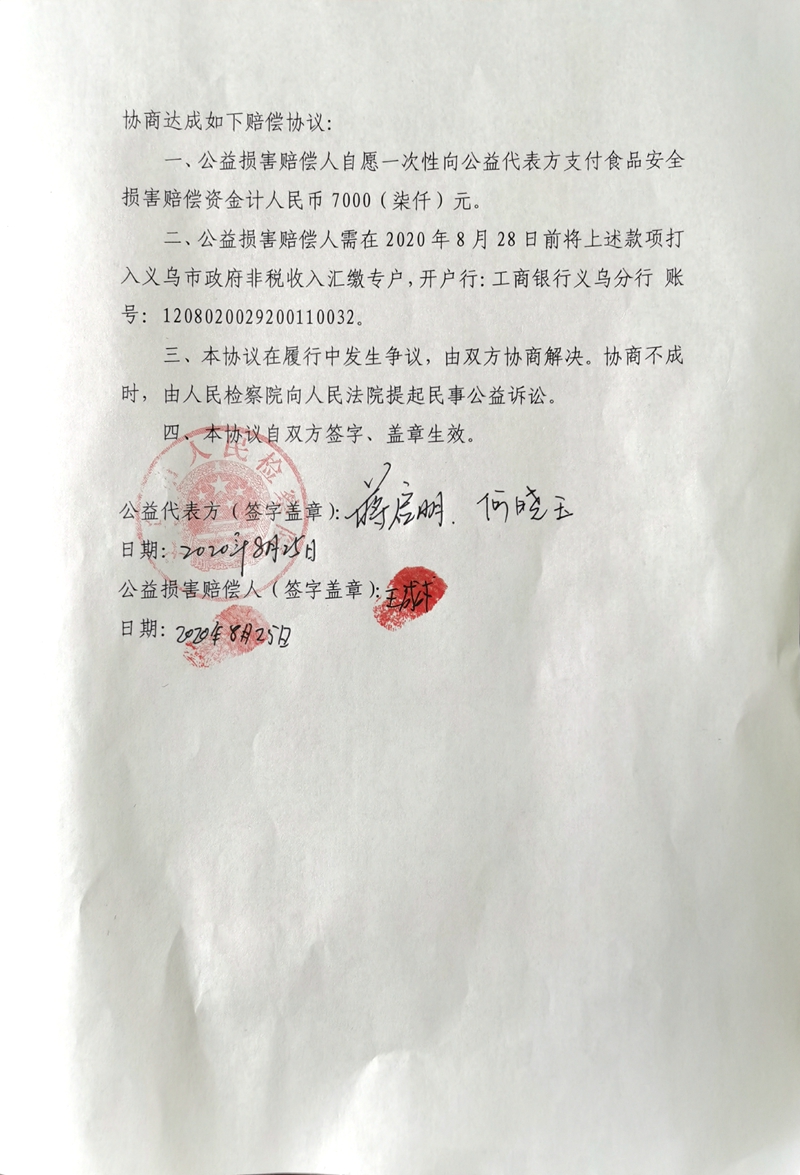 协商达成如下赔偿协议：
一、公益损害赔偿人自愿一次性向公益代表方支付食品安全
损害赔偿资金计人民币 7000（柒仟）元。
二、公益损害赔偿人需在 2020 年 8 月 28 日前将上述款项打
入义乌市政府非税收入汇缴专户，开户行：工商银行义乌分行 账
号：1208020029200110032。
三、本协议在履行中发生争议，由双方协商解决。协商不成
时，由人民检察院向人民法院提起民事公益诉讼。
四、本协议自双方签字、盖章生效。
人民检察
公益代表方（签字盖章）：蒋启明. 何晓玉
日期：2020年8月25日
公益损害赔偿人（签字盖章）：
日期：2020年8月25日